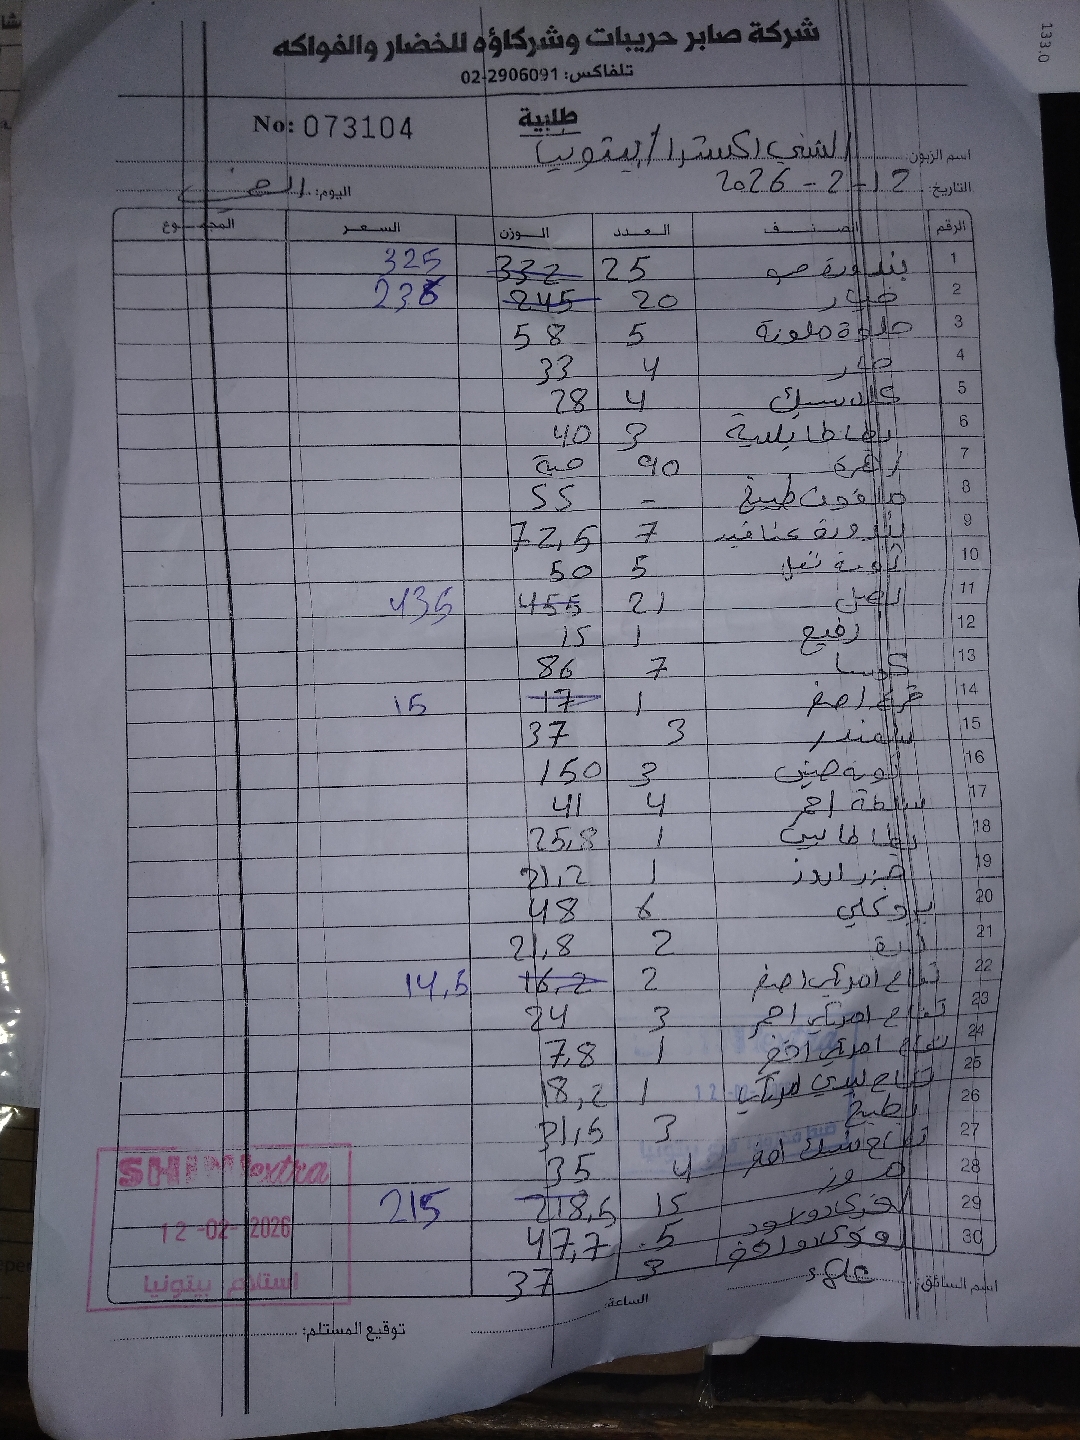 شركة صابر حريبات وشركاؤه للخضار والفواكه
تلفاكس: 02-2906091
طلبية
No: 073104
اسم الزبون: الشني اكسترا / بيتونيا
التاريخ: 12-2-2026 اليوم:
الرقم الصنف العدد الوزن السعر المجموع
1 بندورة 25 332 325
2 خيار 20 245
3 حلوة ملونة 5 58
4 حار 4 33
5 4 28
6 بطاطا 3 40
7 زهرة 90 حبة
8 ملفوف طبيخ - 55
9 بندورة عناقيد 7 72,5
10 5 50
11 بصل 21 455 435
12 1 15
13 كوسا 7 86
14 قرع اصفر 1 17 15
15 شمندر 3 37
16 3 150
17 احمر 4 41
18 بطاطا 1 25,8
19 جزر 1 21,2
20 بروكلي 6 48
21 ذرة 2 21,8
22 تفاح امريكي اصفر 2 16,2 14,5
23 تفاح امريكي احمر 3 24
24 تفاح امريكي اخضر 1 7,8
25 تفاح 1 18,2
26 بطيخ 3 31,5
27 تفاح 4 35
28 موز 15 218,5 215
29 5 47,7
30 3 37
SHINI extra
12-02-2026
استلام بيتونيا
اسم السائق: علاء
الساعة:
توقيع المستلم:
133.0